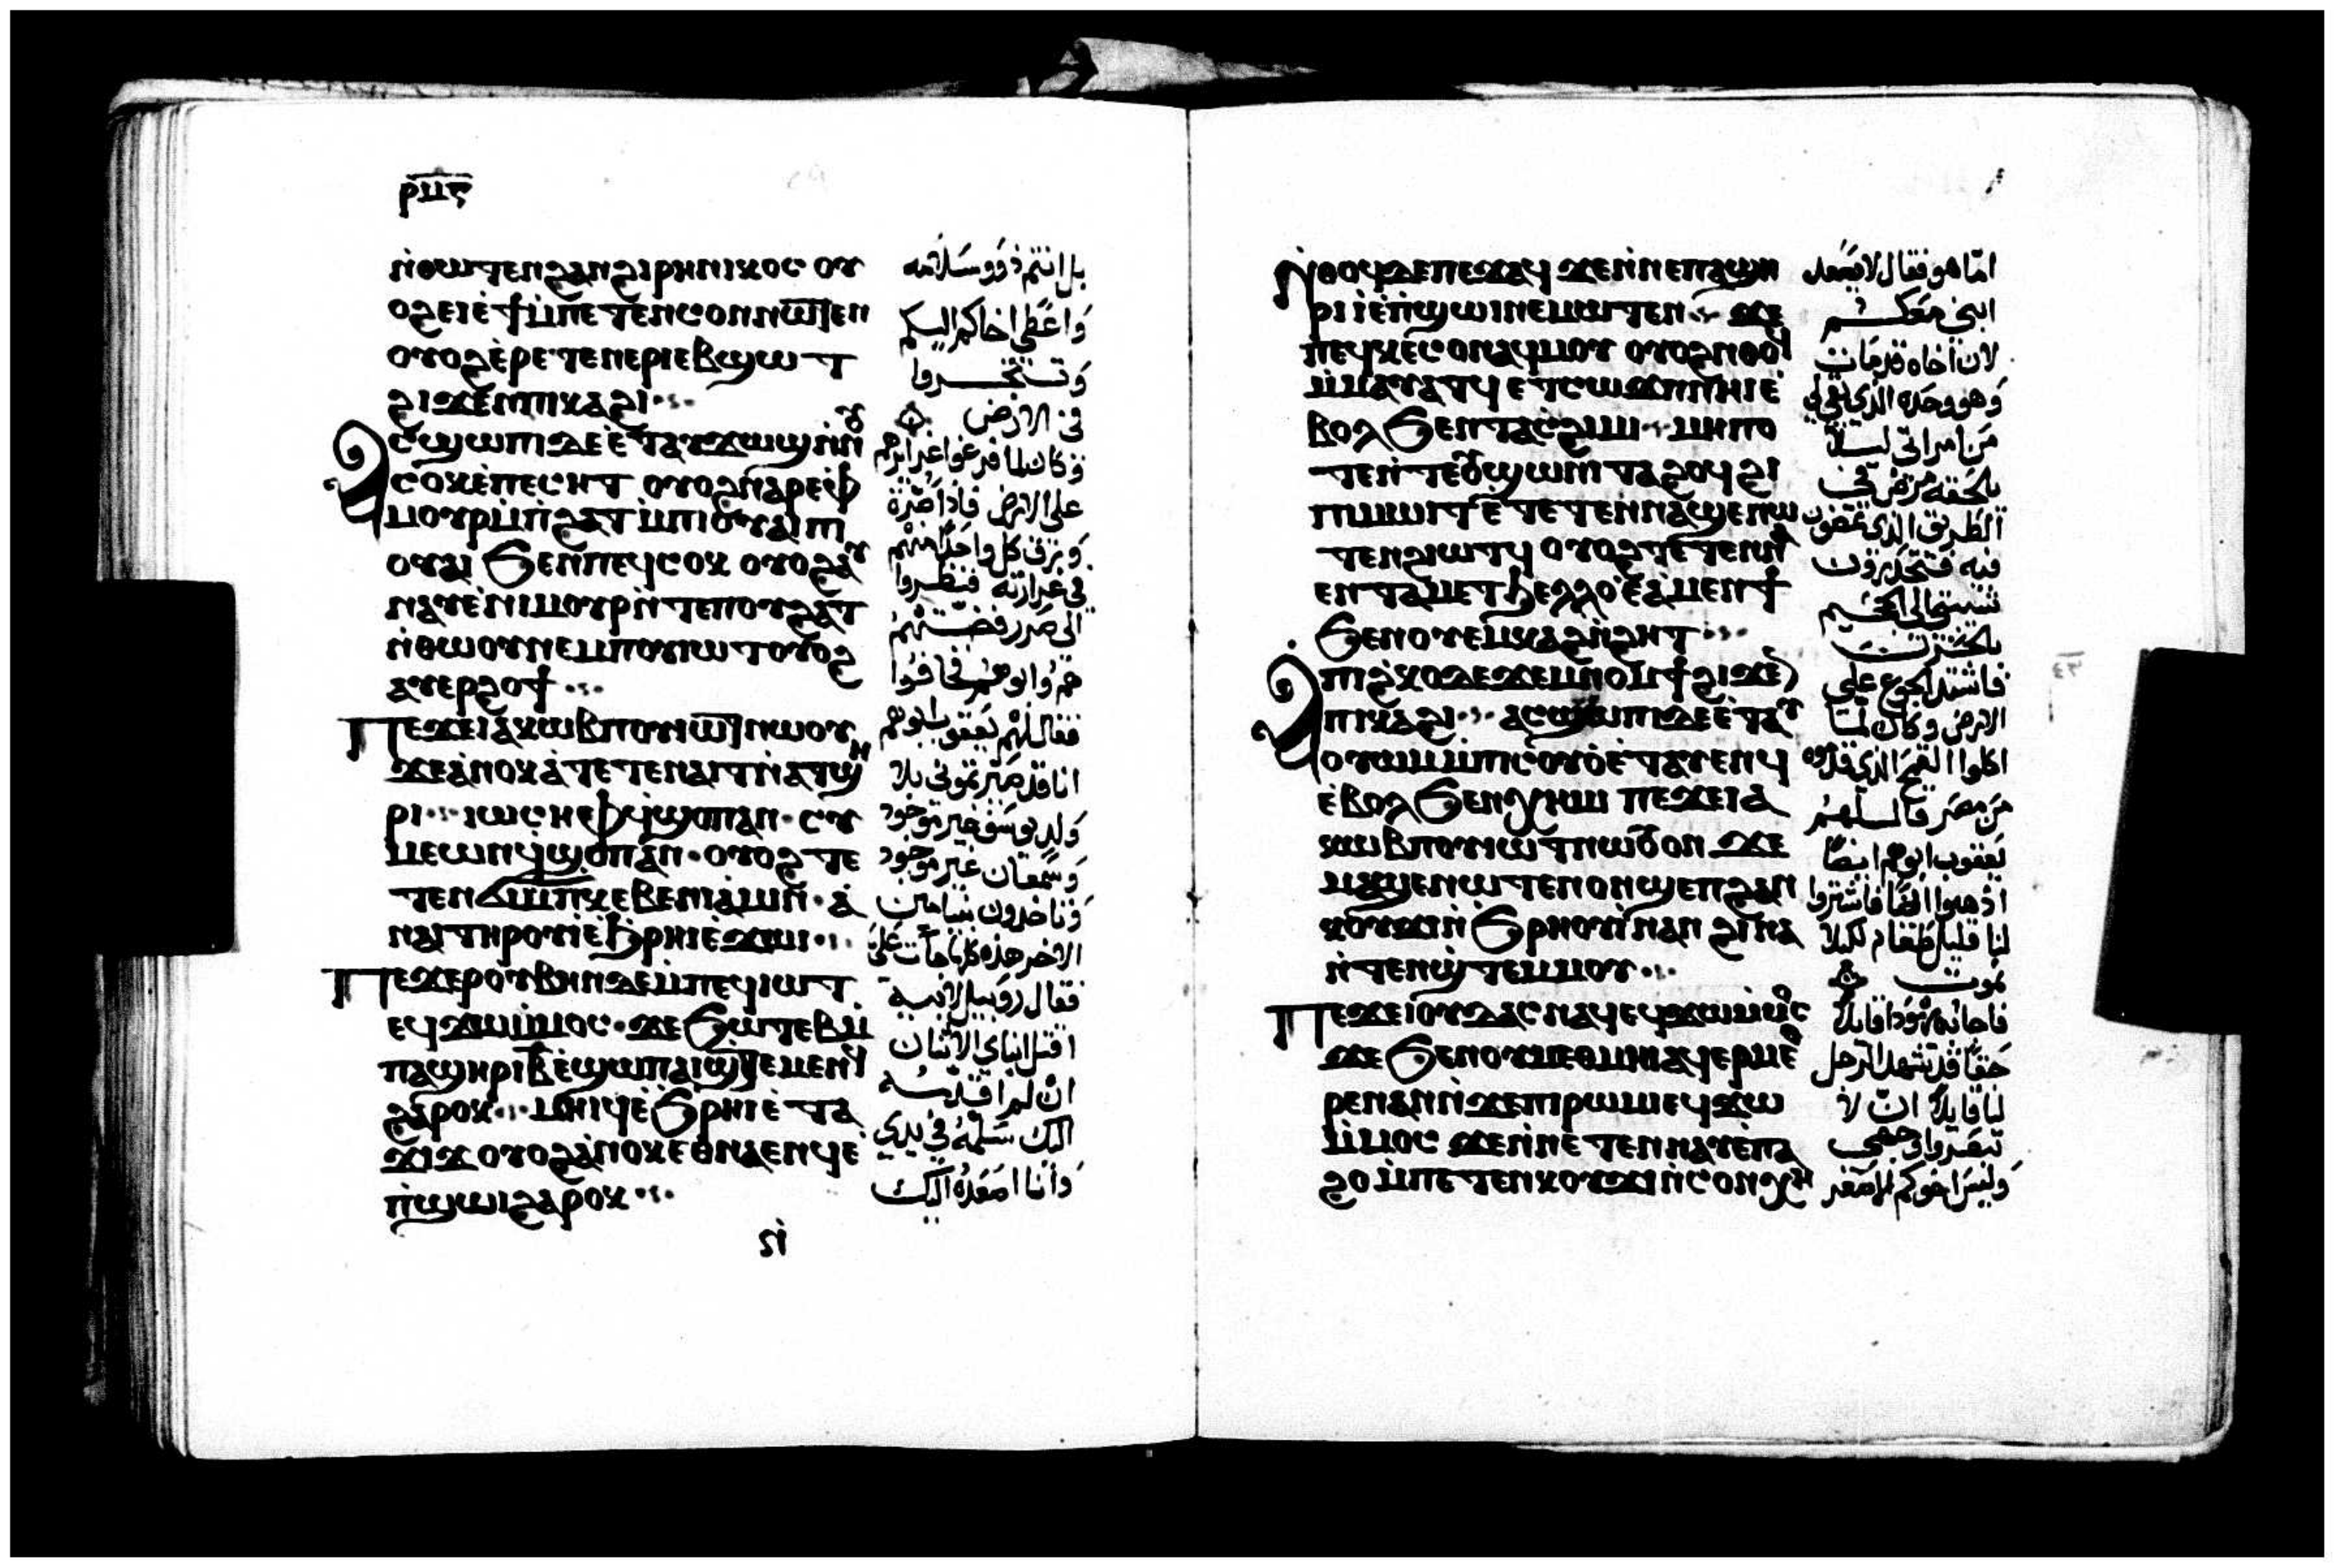 ⲣⲙⲋ
ⲛ̀ⲑⲱⲧⲉⲛ ϩⲁⲛϩⲓⲣⲏⲛⲓⲕⲟⲥ ⲟⲩ
ⲟϩ ⲉⲓⲉ̀ϯ ⲙ̀ⲡⲉⲧⲉⲛⲥⲟⲛ ⲛⲱⲧⲉⲛ
ⲟⲩⲟϩ ⲉ̀ⲣⲉⲧⲉⲛⲉⲣⲓⲉⲃϣⲱⲧ
ϩⲓϫⲉⲛ ⲡⲓⲕⲁϩⲓ
ⲁⲥϣⲱⲡⲓ ⲇⲉ ⲉ̀ⲧⲁⲩϫⲱϣ ⲛ̀ⲛⲟⲩ
ⲥⲟⲕ ⲉ̀ⲡⲉⲥⲏⲧ ⲟⲩⲟϩ ⲛⲁⲣⲉ ⲫ
ⲙⲟⲩⲣ ⲙ̀ⲡϩⲁⲧ ⲙ̀ⲡⲓⲟⲩⲁⲓ ⲡⲓ
ⲟⲩⲁⲓ ϧⲉⲛ ⲡⲉϥⲥⲟⲕ ⲟⲩⲟϩ ⲁⲩ
ⲛⲁⲩ ⲉ̀ⲛⲓⲙⲟⲩⲣ ⲛ̀ⲧⲉ ⲡⲟⲩϩⲁⲧ
ⲛ̀ⲑⲱⲟⲩ ⲛⲉⲙ ⲡⲟⲩⲓⲱⲧ ⲟⲩⲟϩ
ⲁⲩⲉⲣϩⲟϯ
ⲡⲉϫⲉ ⲓⲁⲕⲱⲃ ⲡⲟⲩⲓⲱⲧ ⲛⲱⲟⲩ
ϫⲉ ⲁⲛⲟⲕ ⲁ̀ⲧⲉⲧⲉⲛⲁⲓⲧ ⲛ̀ⲁⲧϣⲏ
ⲣⲓ ⲓⲱⲥⲏⲫ ϥ̀ϣⲟⲡ ⲁⲛ ⲥⲩ
ⲙⲉⲱⲛ ϥ̀ϣⲟⲡ ⲁⲛ ⲟⲩⲟϩ ⲧⲉ
ⲧⲉⲛϭⲓ ⲙ̀ⲡⲕⲉⲃⲉⲛⲓⲁⲙⲓⲛ ⲁ̀
ⲛⲁⲓ ⲧⲏⲣⲟⲩ ⲓ̀ ⲉ̀ϩⲣⲏⲓ ⲉ̀ϫⲱⲓ
ⲡⲉϫⲉ ⲣⲟⲩⲃⲏⲛ ⲇⲉ ⲙ̀ⲡⲉϥⲓⲱⲧ
ⲉϥϫⲱ ⲙ̀ⲙⲟⲥ ϫⲉ ϧⲱⲧⲉⲃ ⲙ̀
ⲡⲁϣⲏⲣⲓ ⲃ̅ ⲉ̀ϣⲱⲡ ⲁⲓϣⲧⲉⲙⲉⲛϥ
ϩⲁⲣⲟⲕ ⲙⲏⲓϥ ⲉ̀ϧⲣⲏⲓ ⲉ̀ⲧⲁ
ϫⲓϫ ⲟⲩⲟϩ ⲁ̀ⲛⲟⲕ ⲉⲑⲛⲁⲉⲛϥ ⲉ̀
ⲡ̀ϣⲱⲓ ϩⲁⲣⲟⲕ
بل انتم ذوو سلامه
واعطى اخاكم اليكم
وتتجروا
فى الارض
وكان لما فرغوا غرايرهم
على الارض فاذا صرة
ورق كل واحد منهم
فى غرارته فنظروا
الى صرر فضتهم
هم وابوهم فخافوا
فقال لهم يعقوب ابوهم
انا قد صيرتمونى بلا
ولد يوسف غير موجود
وسمعان غير موجود
وتاخدون بنيامين
الاخر هذه كلها جات على
فقال روبيل لابيه
اقتل ابناى الاثنان
ان لم اقدمه
اليك سلمه فى يدى
وانا اصعده اليك
ⲛ̀ⲑⲟϥ ⲇⲉ ⲡⲉϫⲁϥ ϫⲉ ⲛ̀ⲛⲉ ⲡⲁϣⲏ
ⲣⲓ ⲓ̀ ⲉ̀ⲡ̀ϣⲱⲓ ⲛⲉⲙⲱⲧⲉⲛ ϫⲉ
ⲡⲉϥⲕⲉⲥⲟⲛ ⲁϥⲙⲟⲩ ⲟⲩⲟϩ ⲛ̀ⲑⲟϥ
ⲙ̀ⲙⲁⲩⲁⲧϥ ⲉⲧⲥⲱϫⲡ ⲛⲏⲓ ⲉ̀
ⲃⲟⲗ ϧⲉⲛ ⲧⲁⲥϩⲓⲙⲓ ⲙⲏⲡⲟ
ⲧⲉ ⲛ̀ⲧⲉϥϣⲱⲛⲓ ⲧⲁϩⲟϥ ϩⲓ
ⲡⲓⲙⲱⲓⲧ ⲉ̀ⲧⲉⲧⲉⲛⲛⲁϣⲉⲛⲱ
ⲧⲉⲛ ϩⲓⲱⲧϥ ⲟⲩⲟϩ ⲧⲉⲧⲉⲛⲓ̀ⲛⲓ
ⲉⲛ ⲧⲁⲙⲉⲧϧⲉⲗⲗⲟ ⲉ̀ⲁ̀ⲙⲉⲛϯ
ϧⲉⲛ ⲟⲩⲉⲙⲕⲁϩ ⲛ̀ϩⲏⲧ
ⲁⲡⲓϩⲕⲟ ⲇⲉ ϫⲉⲙⲛⲟⲙϯ ϩⲓϫⲉⲛ
ⲡⲓⲕⲁϩⲓ ⲁⲥϣⲱⲡⲓ ⲇⲉ ⲉ̀ⲧⲁⲩ
ⲟⲩⲱⲙ ⲙ̀ⲡⲓⲥⲟⲩⲟ ⲉ̀ⲧⲁⲩⲉⲛϥ
ⲉ̀ⲃⲟⲗ ϧⲉⲛ ⲭⲏⲙⲓ ⲡⲉϫⲉ ⲓⲁ
ⲕⲱⲃ ⲡⲟⲩⲓⲱⲧ ⲛⲱⲟⲩ ⲟⲛ ϫⲉ
ⲙⲁϣⲉⲛⲱⲧⲉⲛ ⲟⲛ ϣⲉⲡ ϩⲁⲛ
ⲕⲟⲩϫⲓ ⲛ̀ϧⲣⲏⲟⲩⲓ̀ ⲛⲁⲛ ϩⲓⲛⲁ
ⲛ̀ⲧⲉⲛϣ̀ⲧⲉⲙⲙⲟⲩ
ⲡⲉϫⲉ ⲓⲟⲩⲇⲁⲥ ⲛⲁϥ ⲉϥϫⲱ ⲙ̀ⲙⲟⲥ
ϫⲉ ϧⲉⲛ ⲟⲩⲙⲉⲑⲙⲏⲓ ⲁϥⲉⲣⲙⲉⲑ
ⲣⲉ ⲛⲁⲛ ⲛ̀ϫⲉ ⲡⲓⲣⲱⲙⲓ ⲉϥϫⲱ
ⲙ̀ⲙⲟⲥ ϫⲉ ⲛ̀ⲛⲉⲧⲉⲛⲛⲁⲩ ⲉ̀ⲡⲁ
ϩⲟ ⲙ̀ⲡⲉⲧⲉⲛⲕⲟⲩϫⲓ ⲛ̀ⲥⲟⲛ ⲭⲏ
اما هو فقال لا يصعد
ابنى معكم
لان اخاه قد مات
وهو وحده الذى بقى لى
من امراتى ليلا
يلحقه مرض فى
الطريق الذى تمضون
فيه فتحدرون
شيبتى الى الجحيم
بحزن
فاشتد الجوع على
الارض وكان لما
اكلوا القمح الذى قدموه
من مصر قال لهم
يعقوب ابوهم ايضا
اذهبوا ايضا فاشتروا
لنا قليل طعام لكيلا
نموت
فاجابه يهودا قايلا
حقا قد شهد الرجل
لنا قايلا ان لا
تبصروا وجهى
وليس اخوكم الاصغر